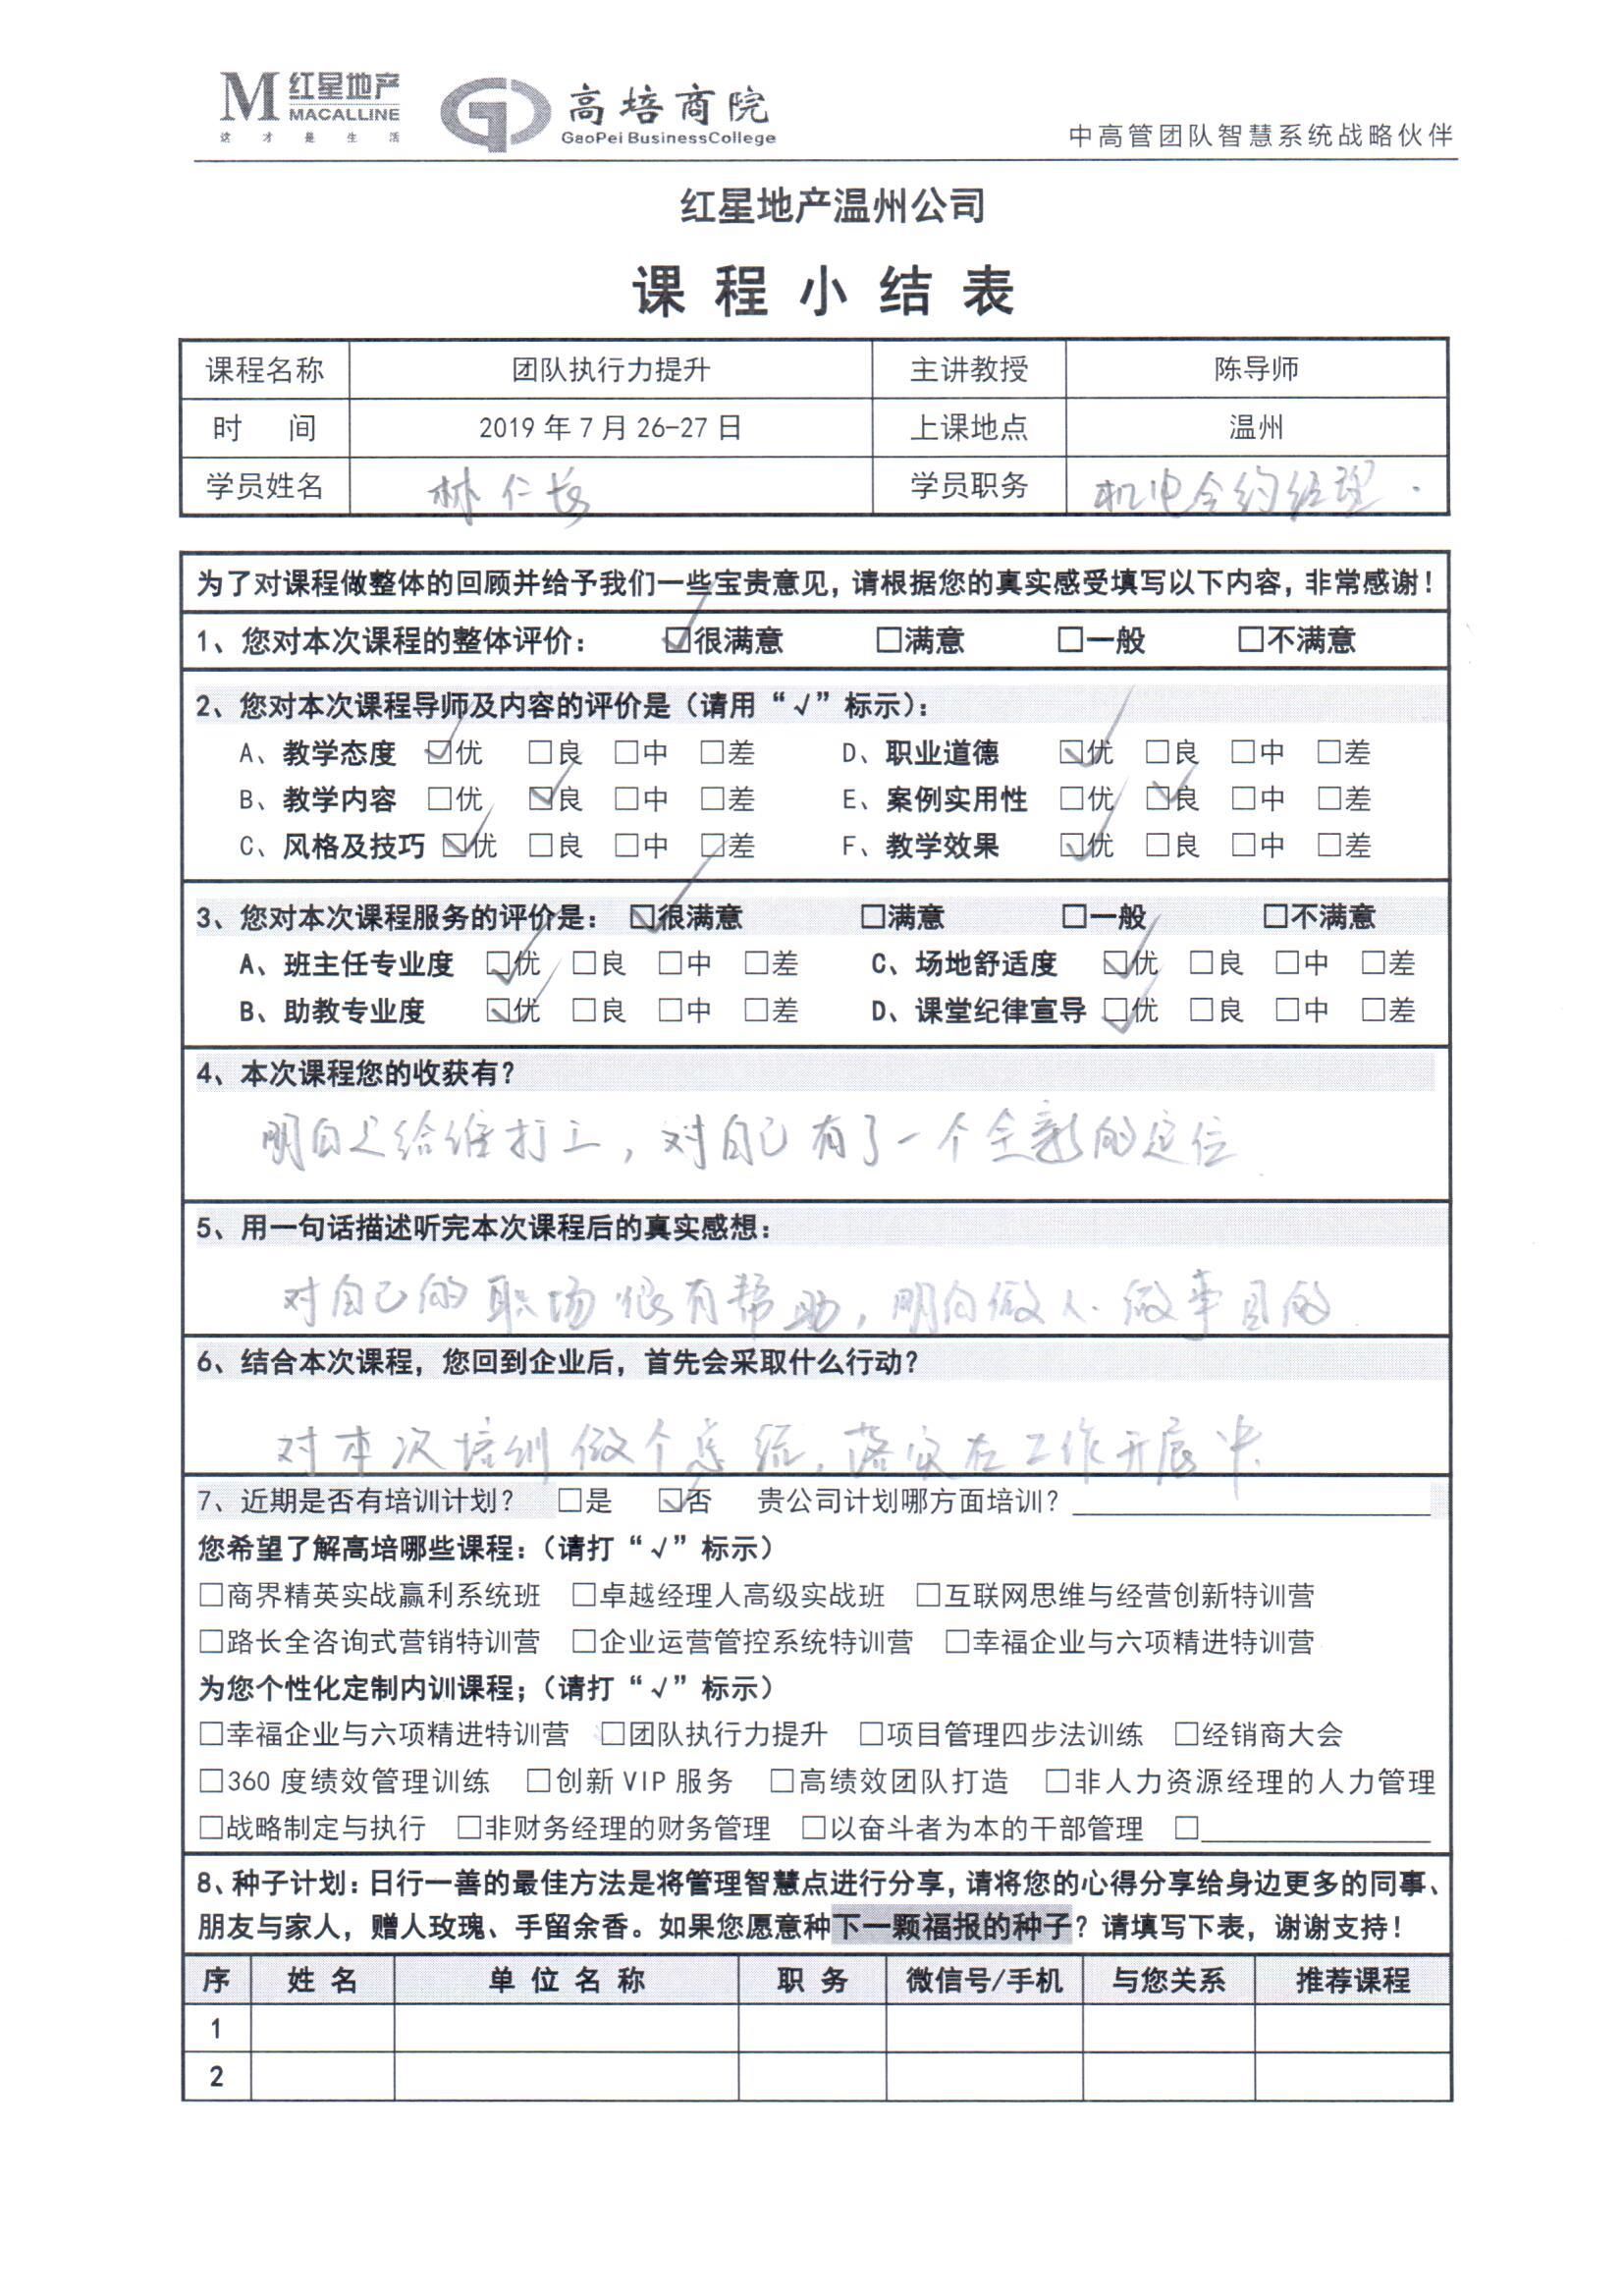 M 红星地产 MACALLINE
这才是生活
高培商院
GaoPei BusinessCollege
中高管团队智慧系统战略伙伴
红星地产温州公司
课程小结表
课程名称 团队执行力提升 主讲教授 陈导师
时 间 2019年7月26-27日 上课地点 温州
学员姓名 林仁 学员职务 机电合约经理.
为了对课程做整体的回顾并给予我们一些宝贵意见，请根据您的真实感受填写以下内容，非常感谢！
1、您对本次课程的整体评价： ☑很满意 □满意 □一般 □不满意
2、您对本次课程导师及内容的评价是（请用“√”标示）：
A、教学态度 ☑优 □良 □中 □差 D、职业道德 ☑优 □良 □中 □差
B、教学内容 □优 ☑良 □中 □差 E、案例实用性 □优 ☑良 □中 □差
C、风格及技巧 ☑优 □良 □中 □差 F、教学效果 ☑优 □良 □中 □差
3、您对本次课程服务的评价是： ☑很满意 □满意 □一般 □不满意
A、班主任专业度 ☑优 □良 □中 □差 C、场地舒适度 ☑优 □良 □中 □差
B、助教专业度 ☑优 □良 □中 □差 D、课堂纪律宣导 ☑优 □良 □中 □差
4、本次课程您的收获有？
明白是给谁打工，对自己有了一个全新的定位
5、用一句话描述听完本次课程后的真实感想：
对自己的职场很有帮助，明白做人、做事目的.
6、结合本次课程，您回到企业后，首先会采取什么行动？
对本次培训做个总结，落实在工作开展中.
7、近期是否有培训计划？ □是 ☑否 贵公司计划哪方面培训？
您希望了解高培哪些课程：（请打“√”标示）
□商界精英实战赢利系统班 □卓越经理人高级实战班 □互联网思维与经营创新特训营
□路长全咨询式营销特训营 □企业运营管控系统特训营 □幸福企业与六项精进特训营
为您个性化定制内训课程；（请打“√”标示）
□幸福企业与六项精进特训营 □团队执行力提升 □项目管理四步法训练 □经销商大会
□360度绩效管理训练 □创新VIP服务 □高绩效团队打造 □非人力资源经理的人力管理
□战略制定与执行 □非财务经理的财务管理 □以奋斗者为本的干部管理 □
8、种子计划：日行一善的最佳方法是将管理智慧点进行分享，请将您的心得分享给身边更多的同事、
朋友与家人，赠人玫瑰、手留余香。如果您愿意种下一颗福报的种子？请填写下表，谢谢支持！
序 姓名 单位名称 职务 微信号/手机 与您关系 推荐课程
1
2